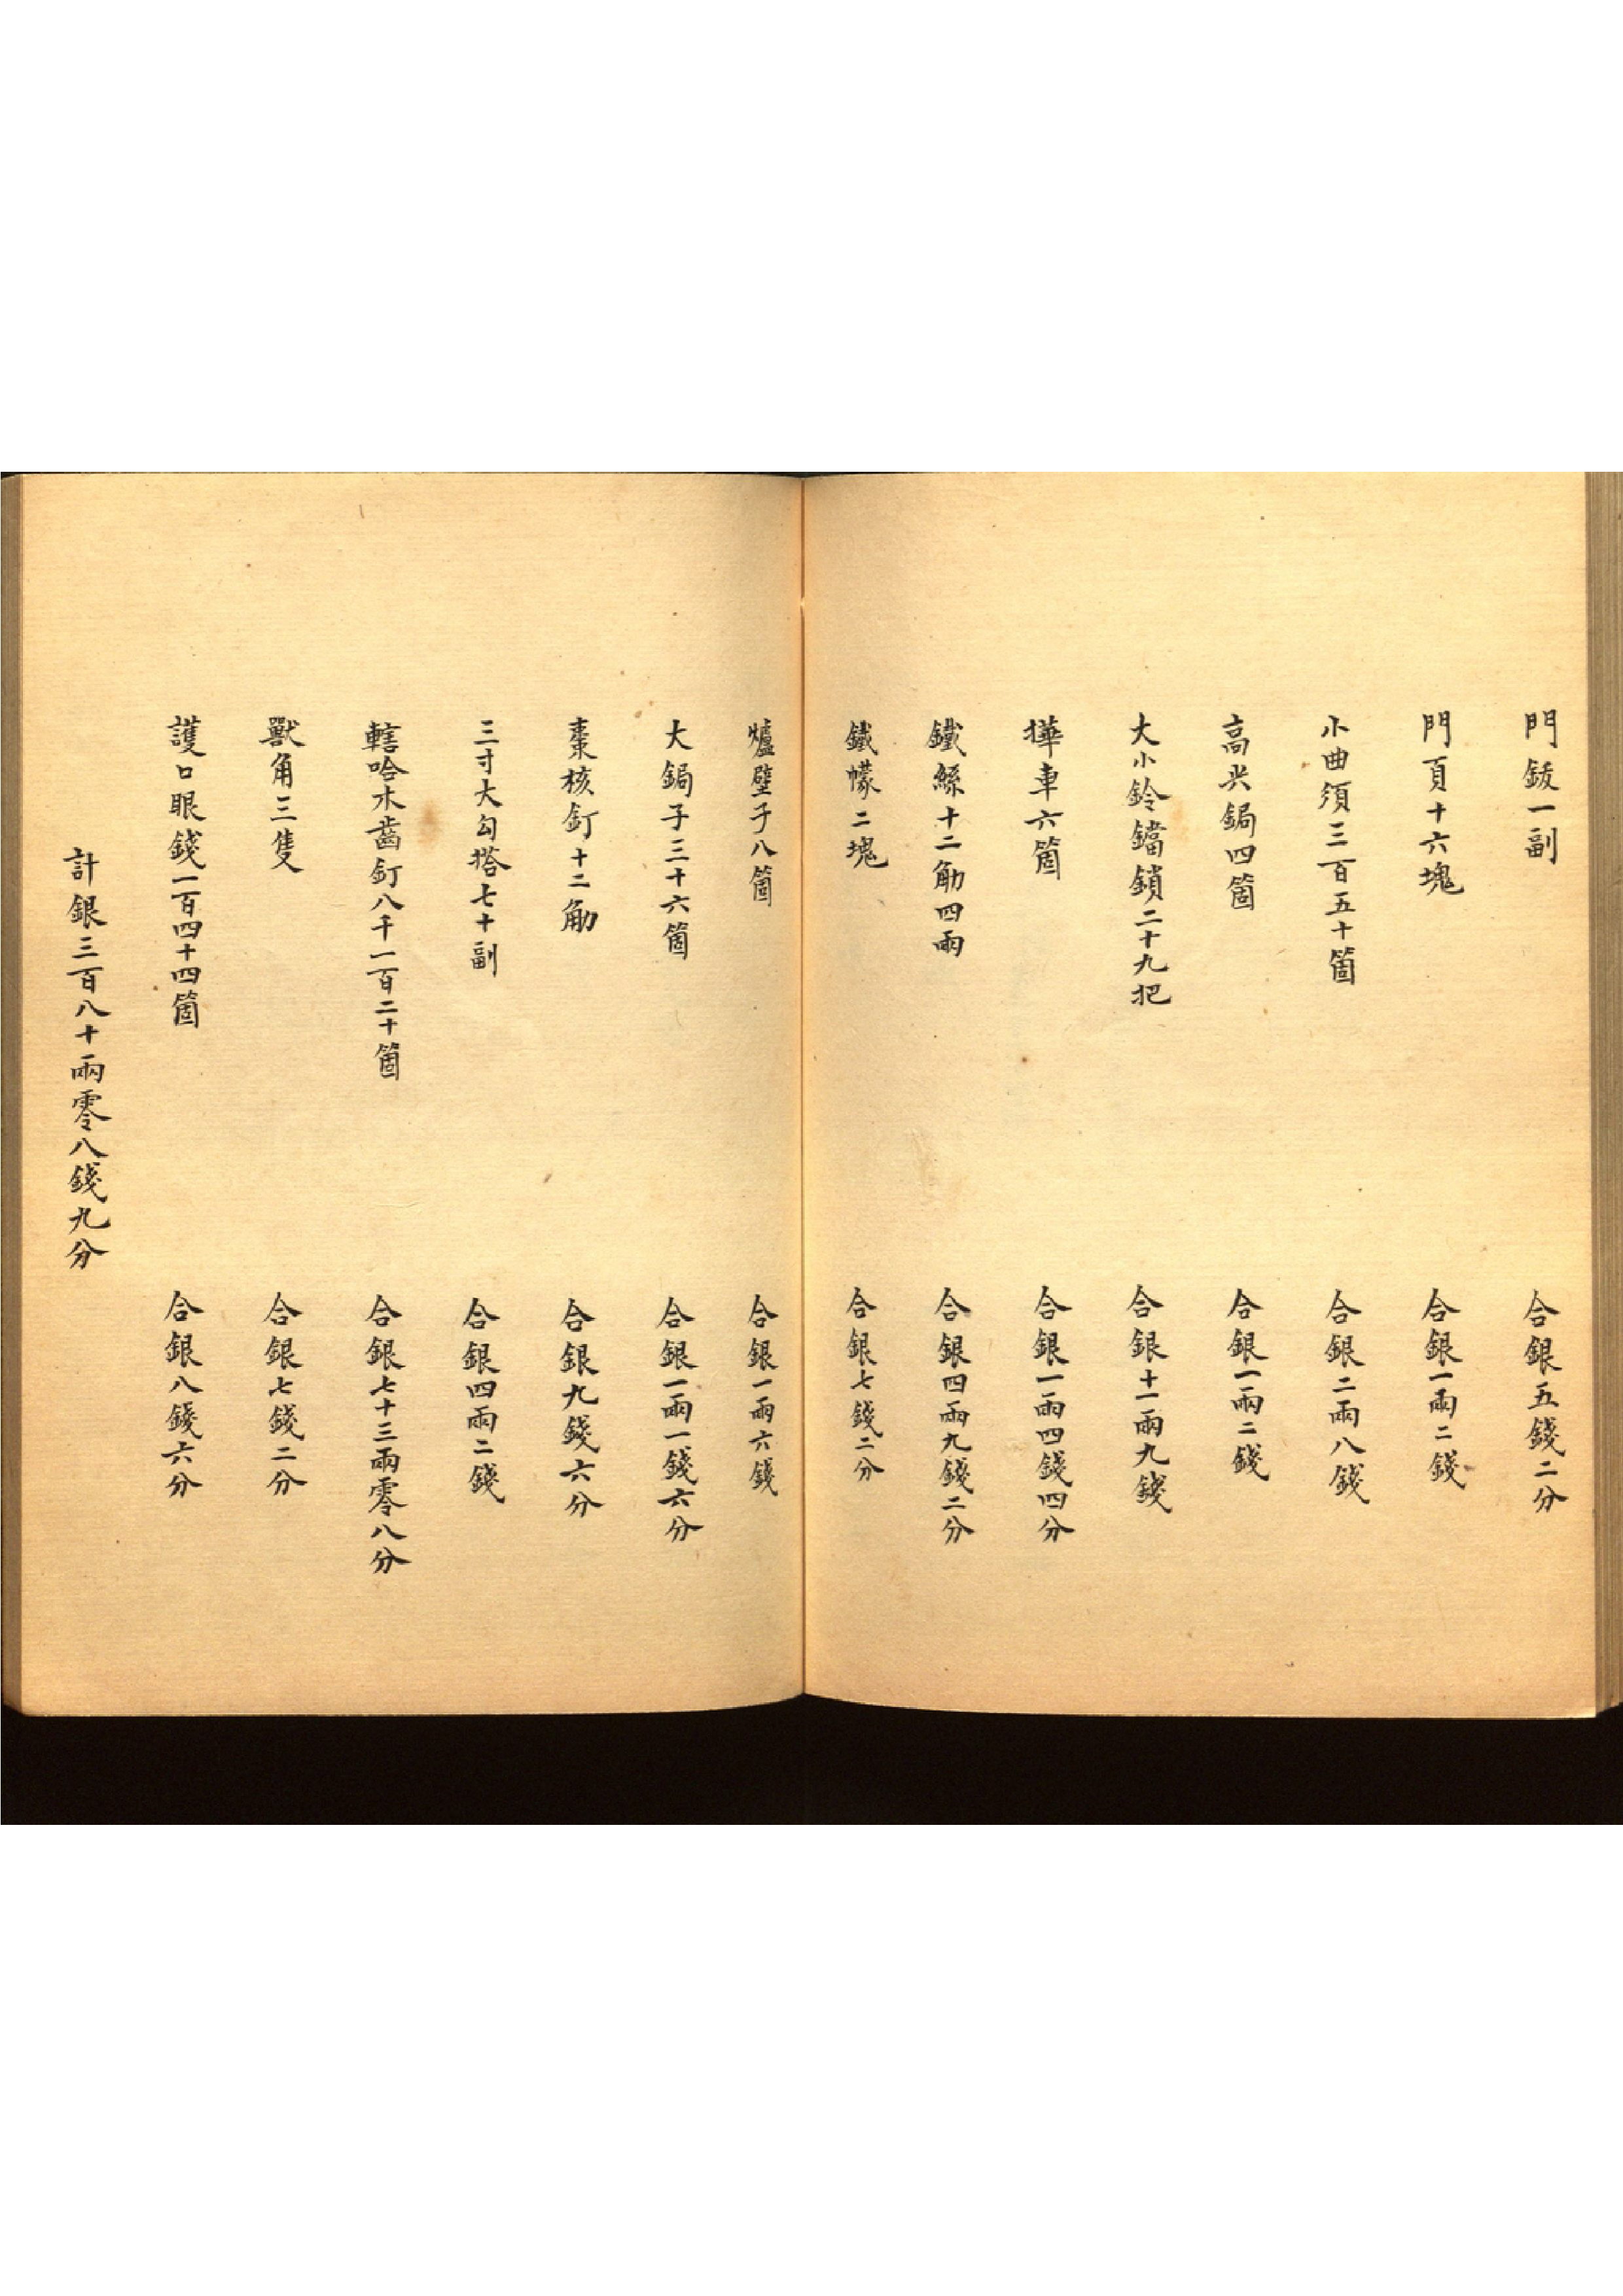 門鈸一副　合銀五錢二分
門頁十六塊　合銀一兩二錢
小曲須三百五十箇　合銀二兩八錢
高尖鋦四箇　合銀一兩二錢
大小鈴鐺鎖二十九把　合銀十一兩九錢
車六箇　合銀一兩四錢四分
鐵絲十二觔四兩　合銀四兩九錢二分
鐵幪二塊　合銀七錢二分
爐壁子八箇　合銀一兩六錢
大鋦子三十六箇　合銀一兩一錢六分
棗核釘十二觔　合銀九錢六分
三寸大勾搭七十副　合銀四兩二錢
轄哈木齒釘八千一百二十箇　合銀七十三兩零八分
獸角三隻　合銀七錢二分
護口眼錢一百四十四箇　合銀八錢六分
計銀三百八十兩零八錢九分